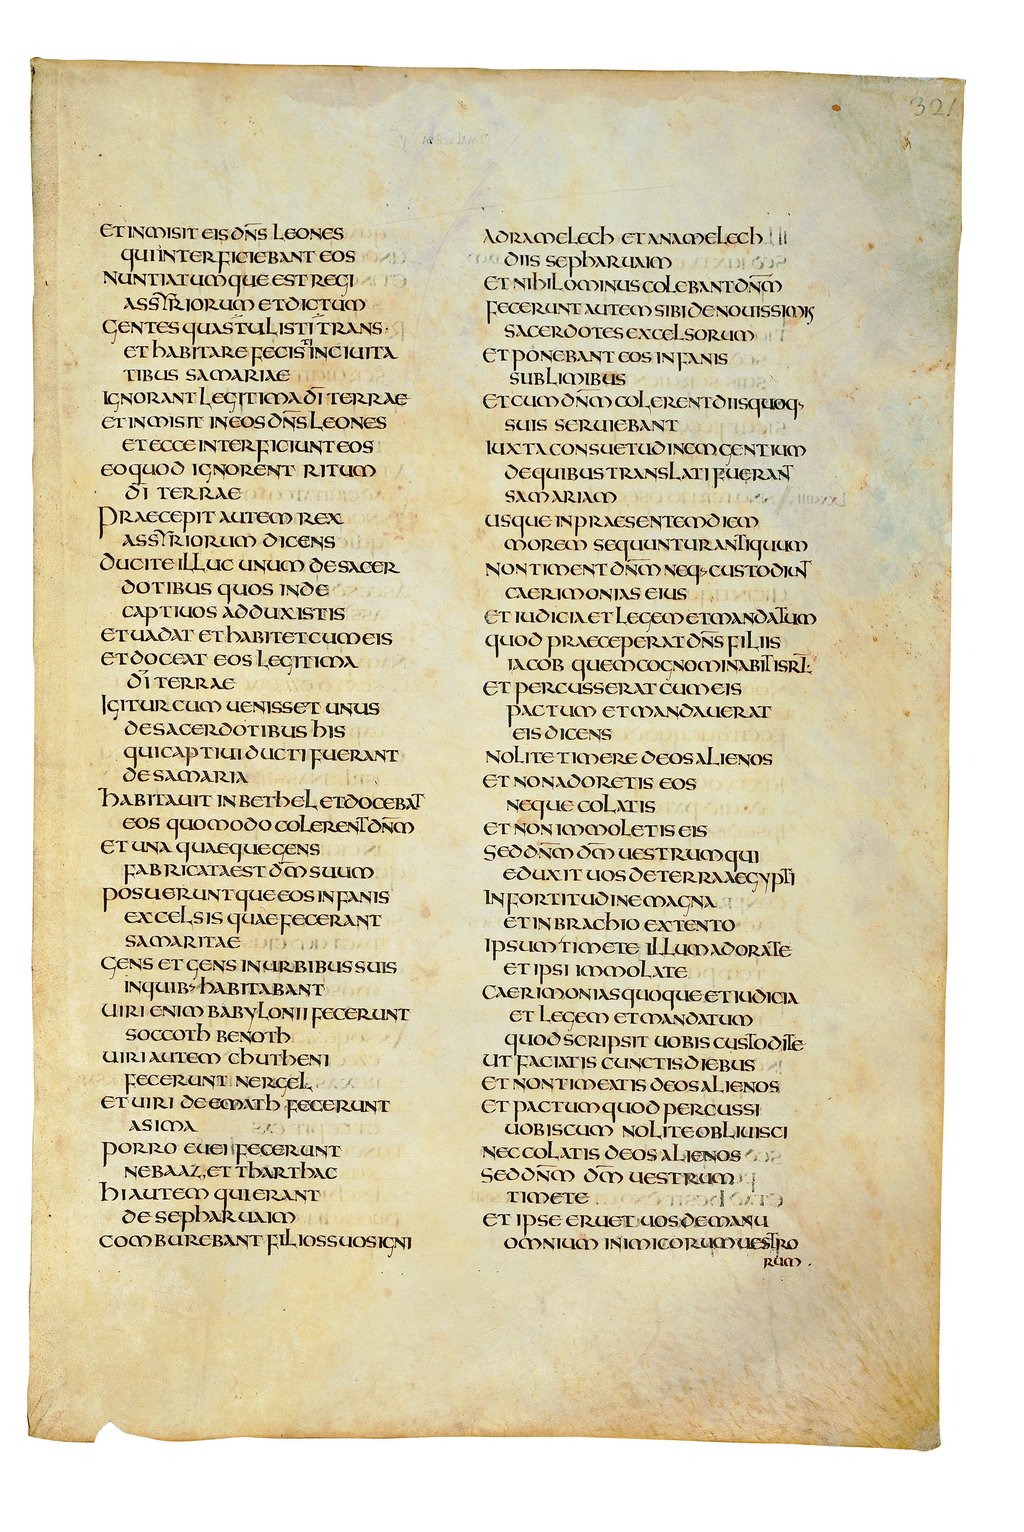 321
ET INMISIT EIS DN̅S LEONES
QUI INTERFICIEBANT EOS
NUNTIATUMQUE EST REGI
ASSYRIORUM ET DICTUM
GENTES QUASTULISTI TRANS·
ET HABITARE FECISTI IN CIUITA
TIBUS SAMARIAE
IGNORANT LEGITIMA DI̅ TERRAE
ET INMISIT IN EOS DN̅S LEONES
ET ECCE INTERFICIUNT EOS
EO QUOD IGNORENT RITUM
DI̅ TERRAE
PRAECEPIT AUTEM REX
ASSYRIORUM DICENS
DUCITE ILLUC UNUM DE SACER
DOTIBUS QUOS INDE
CAPTIUOS ADDUXISTIS
ET UADAT ET HABITET CUM EIS
ET DOCEAT EOS LEGITIMA
DI̅ TERRAE
IGITUR CUM UENISSET UNUS
DE SACERDOTIBUS HIS
QUI CAPTIUI DUCTI FUERANT
DE SAMARIA
HABITAUIT IN BETHEL ET DOCEBAT
EOS QUOMODO COLERENT DN̅M
ET UNAQUAEQUE GENS
FABRICATA EST DM̅ SUUM
POSUERUNTQUE EOS IN FANIS
EXCELSIS QUAE FECERANT
SAMARITAE
GENS ET GENS IN URBIBUS SUIS
INQUIB· HABITABANT
UIRI ENIM BABYLONII FECERUNT
SOCCOTH BENOTH
UIRI AUTEM CHUTHENI
FECERUNT NERGEL
ET UIRI DE EMATH FECERUNT
ASIMA
PORRO EUEI FECERUNT
NEBAAZ, ET THARTHAC
HI AUTEM QUI ERANT
DE SEPHARUAIM
COMBUREBANT FILIOS SUOS IGNI
ADRAMELECH ET ANAMELECH
DIIS SEPHARUAIM
ET NIHILOMINUS COLEBANT DN̅M
FECERUNT AUTEM SIBI DE NOUISSIMIS
SACERDOTES EXCELSORUM
ET PONEBANT EOS IN FANIS
SUBLIMIBUS
ET CUM DN̅M COLERENT DIIS QUOQ·
SUIS SERUIEBANT
IUXTA CONSUETUDINEM GENTIUM
DE QUIBUS TRANSLATI FUERANT
SAMARIAM
USQUE IN PRAESENTEM DIEM
MOREM SEQUUNTUR ANTIQUUM
NON TIMENT DN̅M NEQ· CUSTODIUNT
CAERIMONIAS EIUS
ET IUDICIA ET LEGEM ET MANDATUM
QUOD PRAECEPERAT DN̅S FILIIS
IACOB QUEM COGNOMINABIT ISRL̅
ET PERCUSSERAT CUM EIS
PACTUM ET MANDAUERAT
EIS DICENS
NOLITE TIMERE DEOS ALIENOS
ET NON ADORETIS EOS
NEQUE COLATIS
ET NON IMMOLETIS EIS
SED DN̅M DM̅ UESTRUM QUI
EDUXIT UOS DE TERRA AEGYPTI
IN FORTITUDINE MAGNA
ET IN BRACHIO EXTENTO
IPSUM TIMETE ILLUM ADORATE
ET IPSI IMMOLATE
CAERIMONIAS QUOQUE ET IUDICIA
ET LEGEM ET MANDATUM
QUOD SCRIPSIT UOBIS CUSTODITE
UT FACIATIS CUNCTIS DIEBUS
ET NON TIMEATIS DEOS ALIENOS
ET PACTUM QUOD PERCUSSI
UOBISCUM NOLITE OBLIUISCI
NEC COLATIS DEOS ALIENOS
SED DN̅M DM̅ UESTRUM
TIMETE
ET IPSE ERUET UOS DE MANU
OMNIUM INIMICORUM UESTRO
RUM·